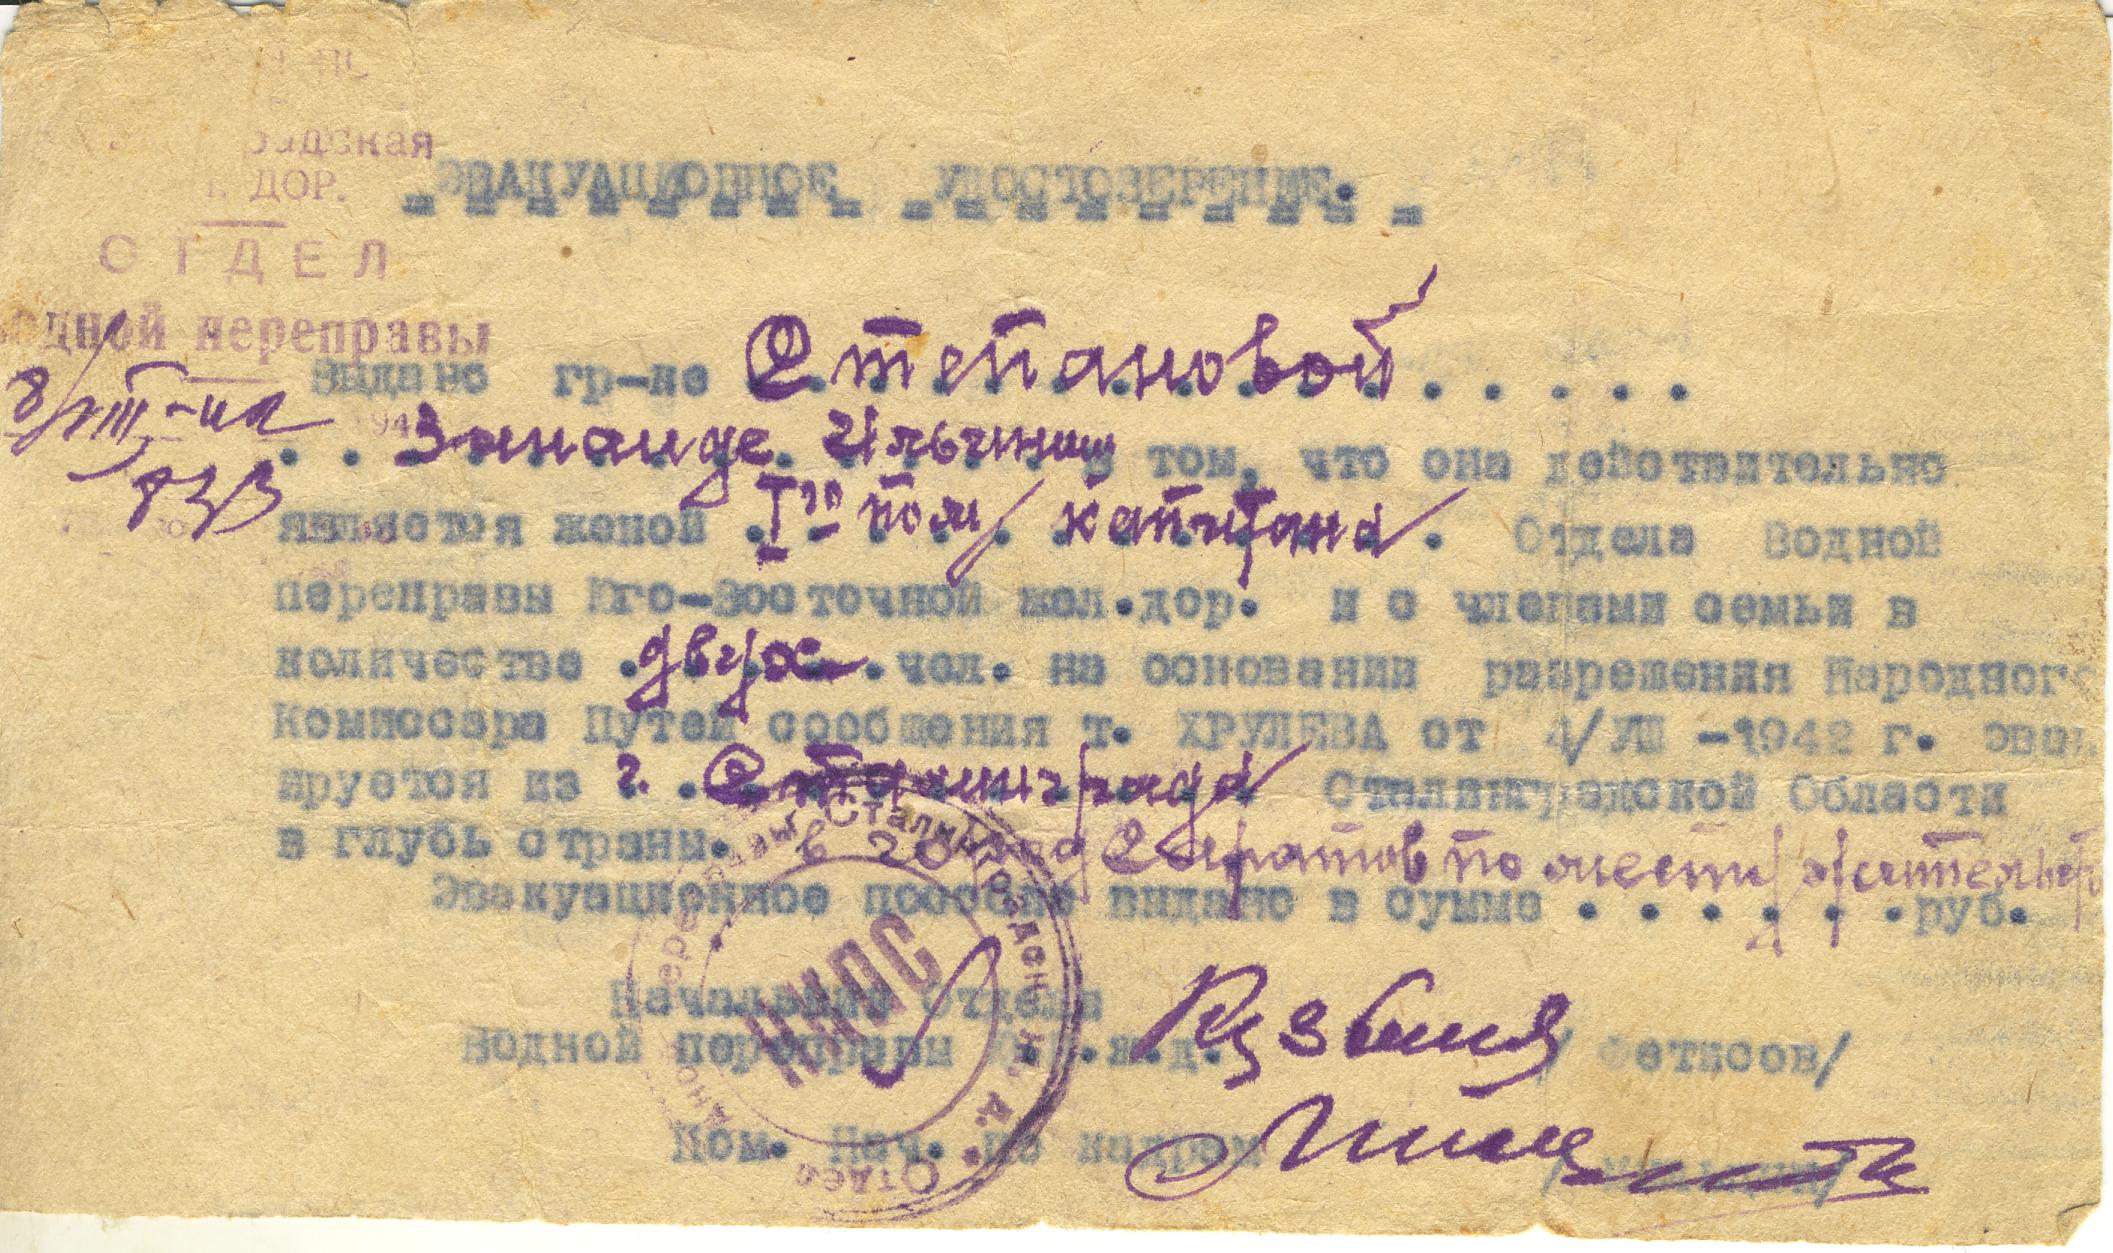 ДОР.
ОТДЕЛ
дной переправы
"ЭВАКУАЦИОННОЕ УДОСТОВЕРЕНИЕ."
Выдано гр-не Степановой
Зинаиде Ильиничн в том, что она действительно
является женой I го пом капитана. Отдела Водной
переправы Юго-Восточной жел.дор. и с членами семьи в
количестве двух чел. на основании разрешения Народног
Комиссара Путей сообщения т. ХРУЛЕВА от 4/VIII -1942 г. эвак
ируется из г. Сталинграда Сталинградской Области
в глубь страны. в город Саратов по мест жительств
Эвакуационное пособие выдано в сумме . . . . . .руб.
Начальник Отдела
Водной переправы .в.ж.д. / Фетисов/
Пом. Нач. по кадрам
НКПС